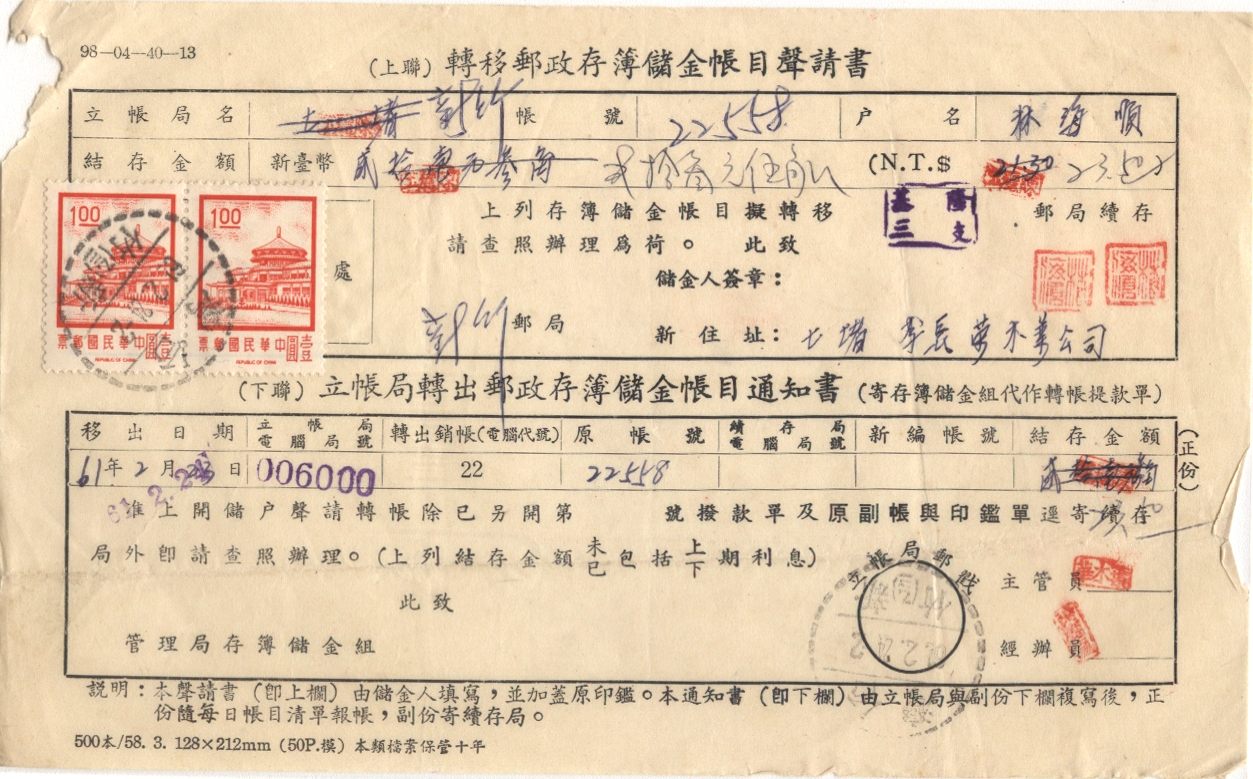 98—04—40—13
(上聯) 轉移郵政存簿儲金帳目聲請書
立帳局名 七堵 新竹 帳號 22558 户名 林海順
結存金額 新臺幣 貳拾 元 角 貳拾叁元伍角 (N.T.$ 21.50 23.50
上列存簿儲金帳目擬轉移 基隆三支 郵局續存
請查照辦理爲荷。 此致
處
儲金人簽章： 林海順 林海順
新竹 郵局 新住址： 七堵 李長 木業公司
1.00 1.00
票郵國民華中 圓壹 票郵國民華中 圓壹
REPUBLIC OF CHINA REPUBLIC OF CHINA
(下聯) 立帳局轉出郵政存簿儲金帳目通知書 (寄存簿儲金組代作轉帳提款單)
移出日期 立帳局電腦局號 轉出銷帳(電腦代號) 原帳號 續存局電腦局號 新編帳號 結存金額 (正份)
61年2月 日 006000 22 22558
61. 2. 24
準上開儲户聲請轉帳除已另開第 號撥款單及原副帳與印鑑單逕寄續存
局外卽請查照辦理。(上列結存金額未已包括上下期利息)
立帳局郵戳
主管員
此致
經辦員
管理局存簿儲金組
説明：本聲請書 (卽上欄) 由儲金人填寫，並加蓋原印鑑。本通知書 (卽下欄) 由立帳局與副份下欄複寫後，正
份隨每日帳目清單報帳，副份寄續存局。
500本/58. 3. 128×212mm (50P.模) 本類檔案保管十年